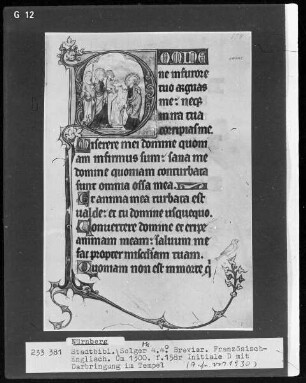 G 12
OMINE
ne in furore
tuo arguas
me: neqz
in ira tua
corripias me.
Miserere mei domine quoni
am infirmus sum: sana me
domine quoniam conturbata
sunt omnia ossa mea.
Et anima mea turbata est
ualde: et tu domine usquequo.
Convertere domine et eripe
animam meam: saluum me
fac propter misericordiam tuam.
Quoniam non est in morte q
Nürnberg
233 381 Stadtbibl. Solger 4.4° Breviar. Französisch-
Englisch. Um 1300. f.158r Initiale D mit
Darbringung im Tempel